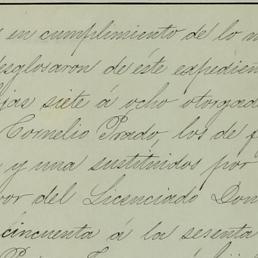 en cumplimiento de lo m
esglosaron de éste expedien
jas siete á ocho otorgad
Cornelio Prado, los de f
y una sustituidos por
vor del Licenciado Don
cincuenta á la sesenta